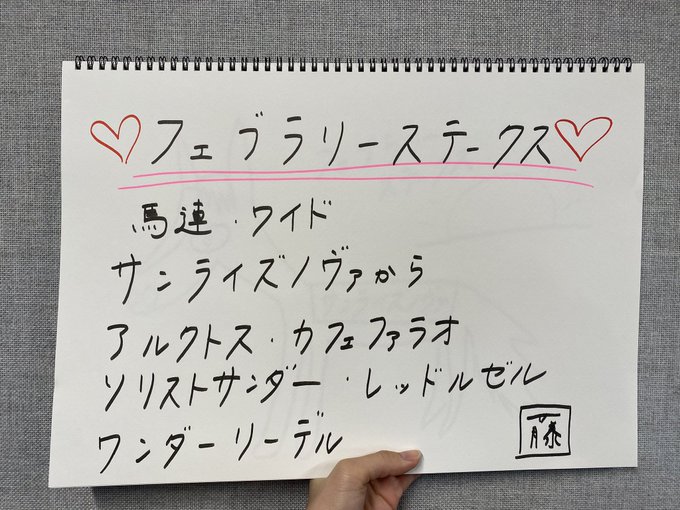 ♡フェブラリーステークス♡
馬連・ワイド
サンライズノヴァから
アルクトス・カフェファラオ
ソリストサンダー・レッドルゼル
ワンダーリーデル
藤